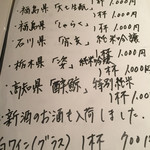 福島県「天明
1杯 1,000円
・福島県「しゃらく」
1杯 1,000円
・石川県「 」純米吟醸
1杯 1,000円
・栃木県「姿」純米吟醸
1杯 1,000円
・高知県「酔鯨」特別純米
1杯 1,000
新潟のお酒も入荷しました。
白ワイン(グラス) 1杯 700